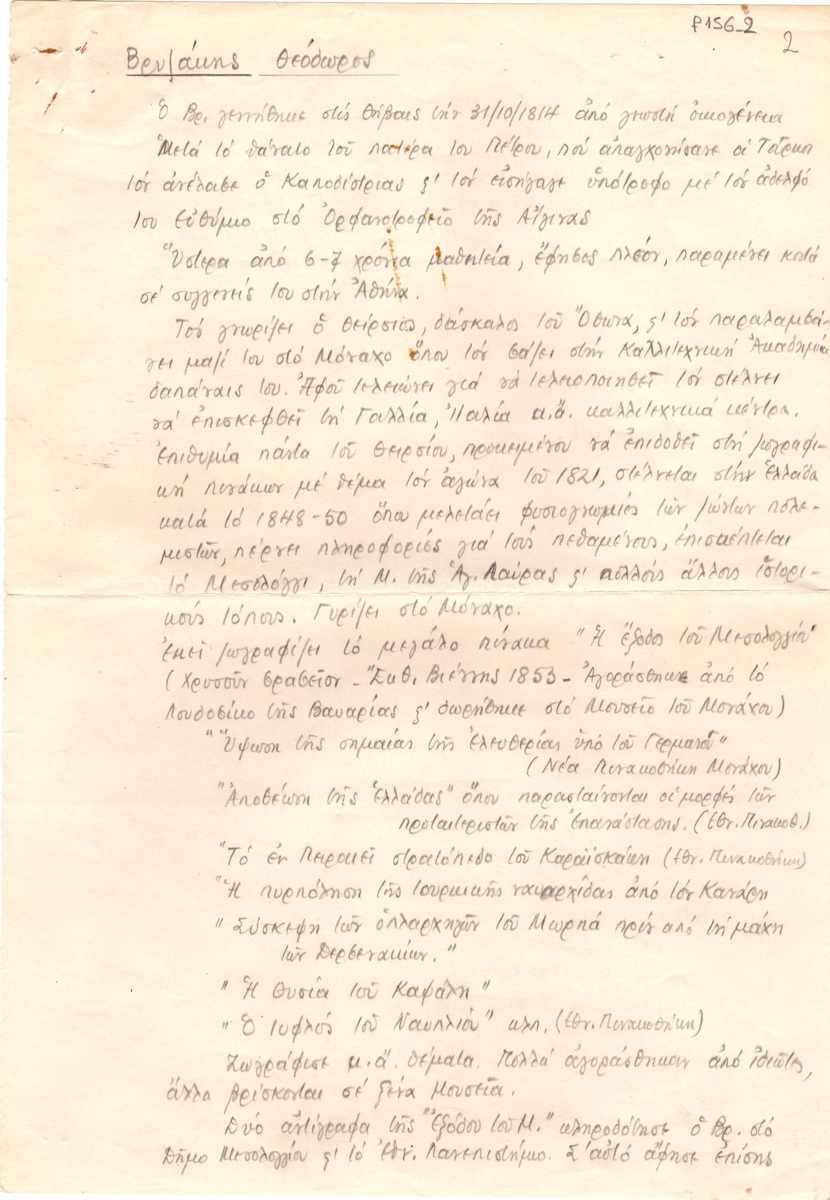 P156_2
2
Βρυζάκης Θεόδωρος
Ὁ Βρ. γεννήθηκε στίς Θήβαις τήν 31/10/1814 ἀπό γνωστή οἰκογένεια
Μετά τό θάνατο τοῦ πατέρα του Πέτρου, πού ἀπαγχονίσανε οἱ Τοῦρκοι
τόν ἀνέλαβε ὁ Καποδίστριας ϛ' τόν εἰσήγαγε ὑπότροφο μέ τόν ἀδελφό
του Εὐθύμιο στό Ὀρφανοτροφεῖο τῆς Αἴγινας
Ὕστερα ἀπό 6-7 χρόνια μαθητεία, ἔφηβος πλέον, παραμένει κοντά
σέ συγγενεῖς του στήν Ἀθήνα.
Τόν γνωρίζει ὁ Θείρσιος, δάσκαλος τοῦ Ὄθωνα, ϛ' τόν παραλαμβά-
νει μαζί του στό Μόναχο ὅπου τόν βάζει στήν Καλλιτεχνική Ἀκαδημία
δαπάναις του. Ἀφοῦ τελειώνει γιά νά τελειοποιηθεῖ τόν στέλνει
νά ἐπισκεφθεῖ τή Γαλλία, Ἰταλία κ.ἄ. καλλιτεχνικά κέντρα.
Ἐπιθυμία πάντα τοῦ Θειρσίου, προκειμένου νά ἐπιδοθεῖ στή ζωγραφι-
κή πινάκων μέ θέμα τόν ἀγώνα τοῦ 1821, στέλνεται στήν Ἑλλάδα
κατά τό 1848-50 ὅπου μελετάει φυσιογνωμίες τῶν ζώντων πολε-
μιστῶν, πέρνει πληροφορίες γιά τούς πεθαμένους, ἐπισκέπτεται
τό Μεσολόγγι, τή Μ. τῆς Ἁγ. Λαύρας ϛ' πολλούς ἄλλους ἱστορι-
κούς τόπους. Γυρίζει στό Μόναχο.
Ἐκεῖ ζωγραφίζει τό μεγάλο πίνακα "Ἡ ἔξοδος τοῦ Μεσολογγίου"
(Χρυσοῦν βραβεῖον - Ἔκθ. Βιέννης 1853 - Ἀγοράσθηκε ἀπό τό
Λουδοβίκο τῆς Βαυαρίας ϛ' δωρήθηκε στό Μουσεῖο τοῦ Μονάχου)
"Ὕψωση τῆς σημαίας τῆς Ἐλευθερίας ὑπό τοῦ Γερμανοῦ"
(Νέα Πινακοθήκη Μονάχου)
"Ἀποθέωση τῆς Ἑλλάδας" ὅπου παρασταίνονται οἱ μορφές τῶν
πρωταιτεριστῶν τῆς Ἐπανάστασης. (Ἐθν. Πινακοθ.)
"Τό ἐν Πειραιεῖ στρατόπεδο τοῦ Καραϊσκάκη (Ἐθν. Πινακοθήκη)
"Ἡ πυρπόληση τῆς τουρκικῆς ναυαρχίδας ἀπό τόν Κανάρη
"Σύσκεψη τῶν ὁπλαρχηγῶν τοῦ Μωρηά πρίν ἀπό τή μάχη
τῶν Δερβενακίων."
"Ἡ Θυσία τοῦ Καψάλη"
"Ὁ τυφλός τοῦ Ναυπλίου" κλπ. (Ἐθν. Πινακοθήκη)
Ζωγράφισε κ.ἄ. θέματα. Πολλά ἀγοράσθηκαν ἀπό ἰδιῶτες,
ἄλλα βρίσκονται σέ ξένα Μουσεῖα.
Δυό ἀντίγραφα τῆς "Ἐξόδου τοῦ Μ." κληροδότησε ὁ Βρ. στό
Δῆμο Μεσολογγίου ϛ' τό Ἐθν. Πανεπιστήμιο. Σ' αὐτό ἄφησε ἐπίσης